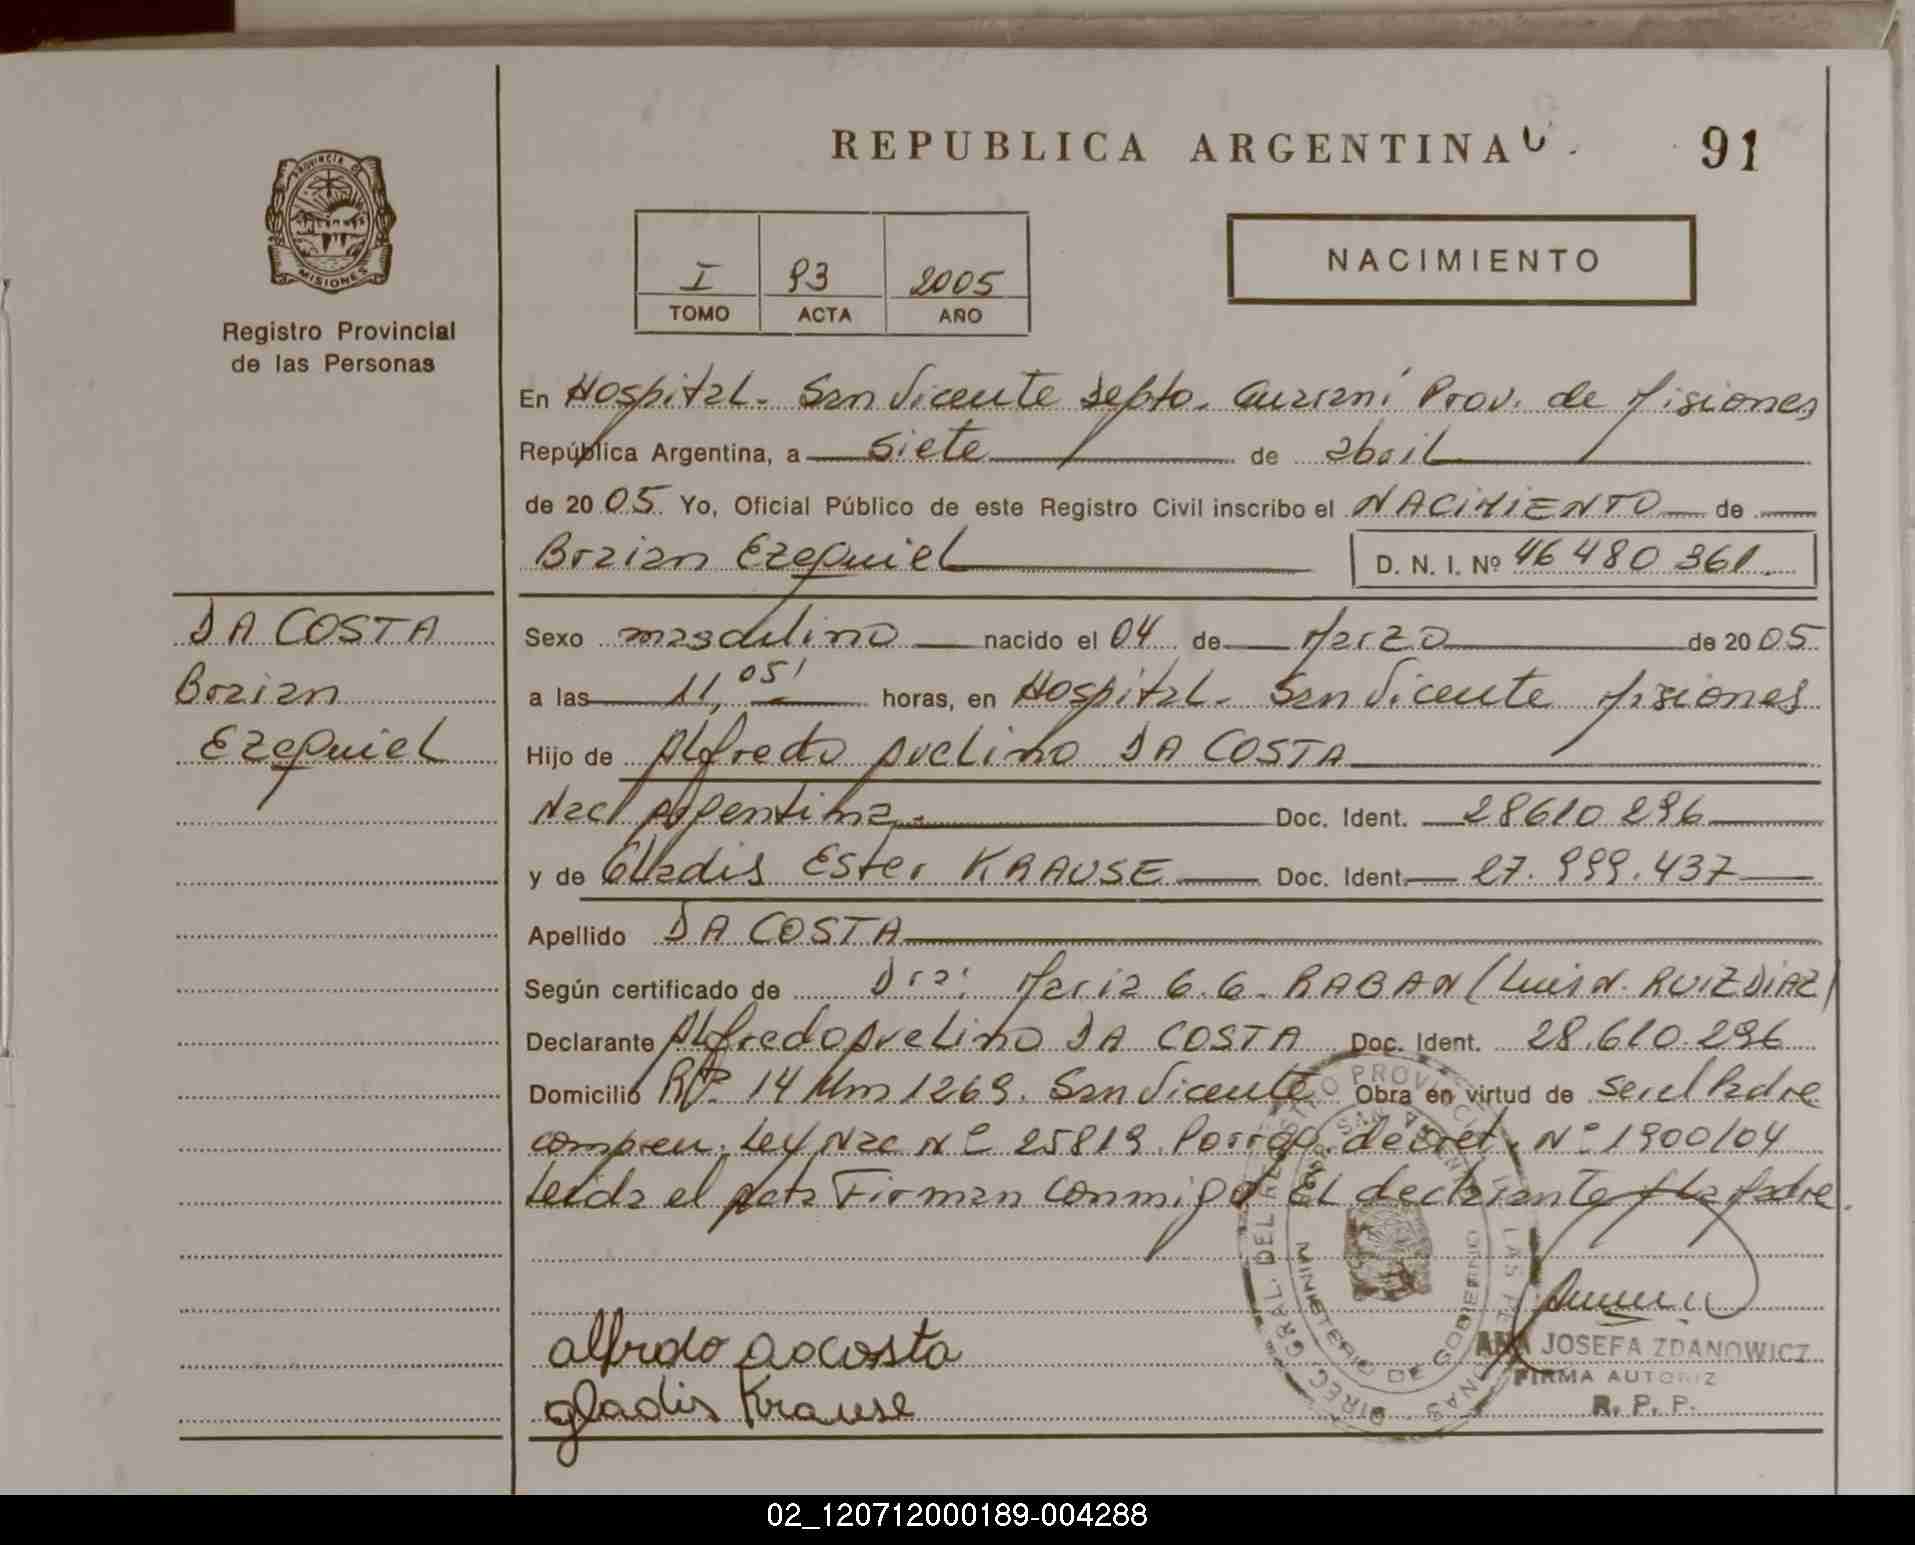 REPUBLICA ARGENTINA
91
PROVINCIA DE
MISIONES
Registro Provincial
de las Personas
I 93 2005
TOMO ACTA AÑO
NACIMIENTO
En Hospital - San Vicente Depto. Guaraní Prov. de Misiones
República Argentina, a siete de abril
de 2005 Yo, Oficial Público de este Registro Civil inscribo el NACIMIENTO de
Braian Ezequiel D. N. I. Nº 46 480 361
DA COSTA
Braian
Ezequiel
Sexo masculino nacido el 04 de Marzo de 2005
a las 11,05' horas, en Hospital - San Vicente Misiones
Hijo de Alfredo Avelino DA COSTA
Nac. Argentina Doc. Ident. 28610 296
y de Gladis Ester KRAUSE Doc. Ident. 27.999.437
Apellido DA COSTA
Según certificado de Dra: Maria G. G. RABAN (Luis N. RUIZ DIAZ)
Declarante Alfredo Avelino DA COSTA Doc. Ident. 28.610.296
Domicilio 14 Km 1269. San Vicente Obra en virtud de ser el Padre
compren. Ley Nac Nº 25819. Porrog. decret. Nº 1900/04
Leida el Acta Firman conmigo El declarante y la Madre.
alfredo dacosta
gladis Krause
DIREC. GRAL. DEL REGISTRO PROVINCIAL DE LAS PERSONAS
MINISTERIO DE GOBIERNO
ANA JOSEFA ZDANOWICZ
FIRMA AUTORIZ
R. P. P.
02_120712000189-004288